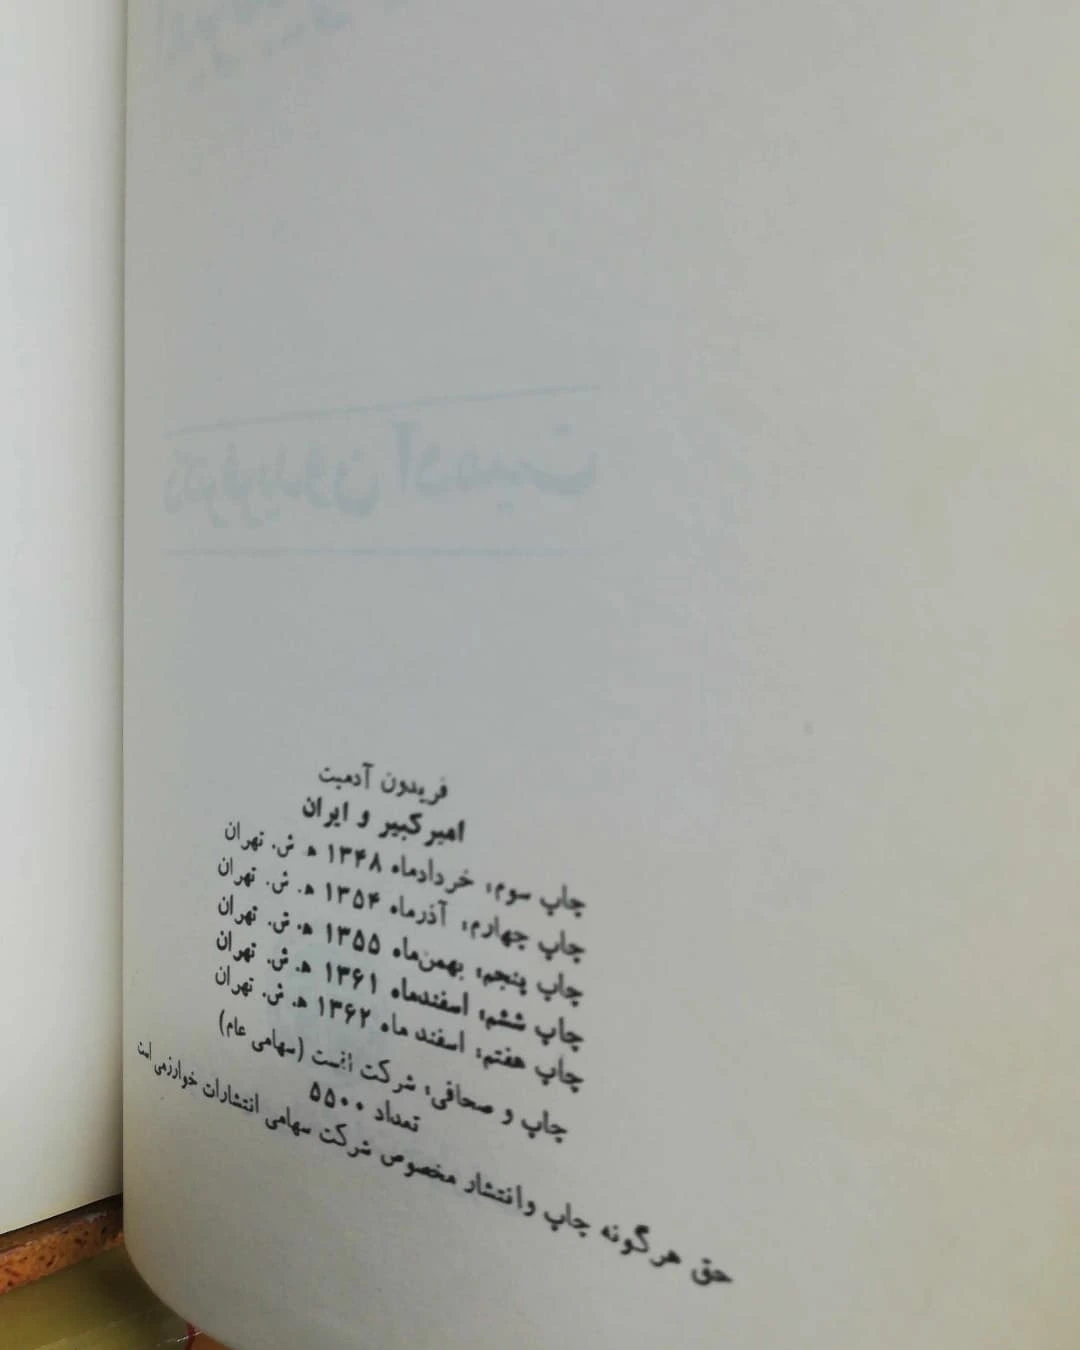 فریدون آدمیت
امیرکبیر و ایران
چاپ سوم: خردادماه ۱۳۴۸ ه‍ ش. تهران
چاپ چهارم: آذرماه ۱۳۵۴ ه‍. ش. تهران
چاپ پنجم: بهمن‌ماه ۱۳۵۵ ه‍. ش. تهران
چاپ ششم: اسفندماه ۱۳۶۱ ه‍. ش. تهران
چاپ هفتم: اسفند ماه ۱۳۶۲ ه‍. ش. تهران
چاپ و صحافی: شرکت افست (سهامی عام)
تعداد ۵۵۰۰
حق هرگونه چاپ و انتشار مخصوص شرکت سهامی انتشارات خوارزمی است